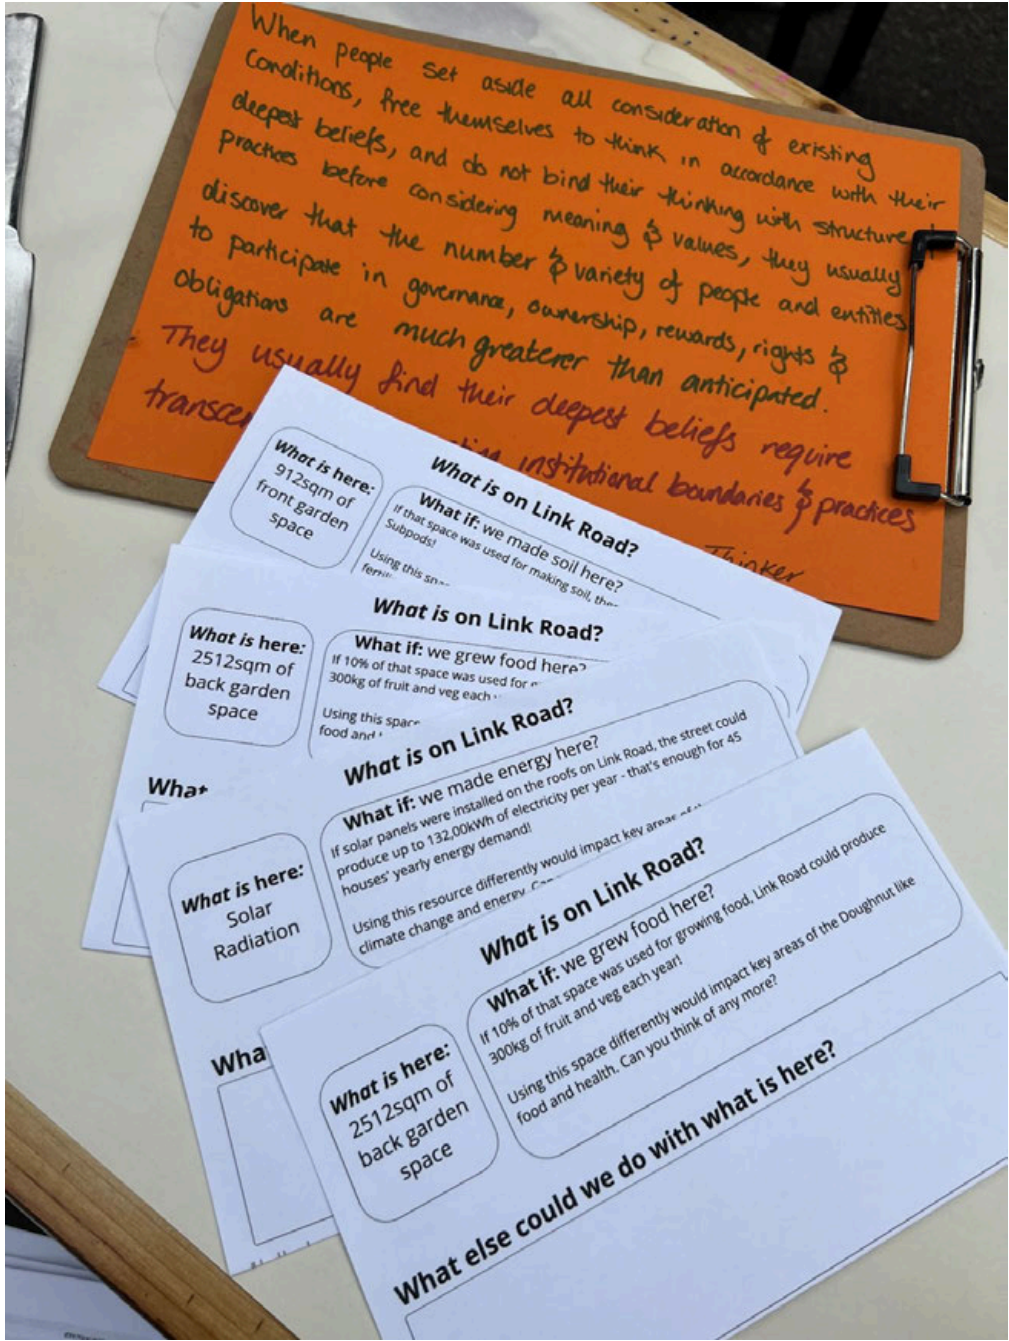 When people set aside all consideration of existing
Conditions, free themselves to think in accordance with their
deepest beliefs, and do not bind their thinking with structure
practices before considering meaning & values, they usually
discover that the number & variety of people and entities
to participate in governance, ownership, rewards, rights &
Obligations are much greaterer than anticipated.
They usually find their deepest beliefs require
institutional boundaries & practices
Thinker
What is on Link Road?
What is here:
912sqm of
front garden
space
What if: we made soil here?
If that space was used for making soil,
Subpods!
Using this
What is on Link Road?
What is here:
2512sqm of
back garden
space
What if: we grew food here?
If 10% of that space was used for
300kg of fruit and veg each
Using this space
food and
What is on Link Road?
What is here:
Solar
Radiation
What if: we made energy here?
If solar panels were installed on the roofs on Link Road, the street could
produce up to 132,00kWh of electricity per year - that's enough for 45
houses' yearly energy demand!
Using this resource differently would impact key areas
climate change and energy.
What is on Link Road?
What is here:
2512sqm of
back garden
space
What if: we grew food here?
If 10% of that space was used for growing food, Link Road could produce
300kg of fruit and veg each year!
Using this space differently would impact key areas of the Doughnut like
food and health. Can you think of any more?
What else could we do with what is here?